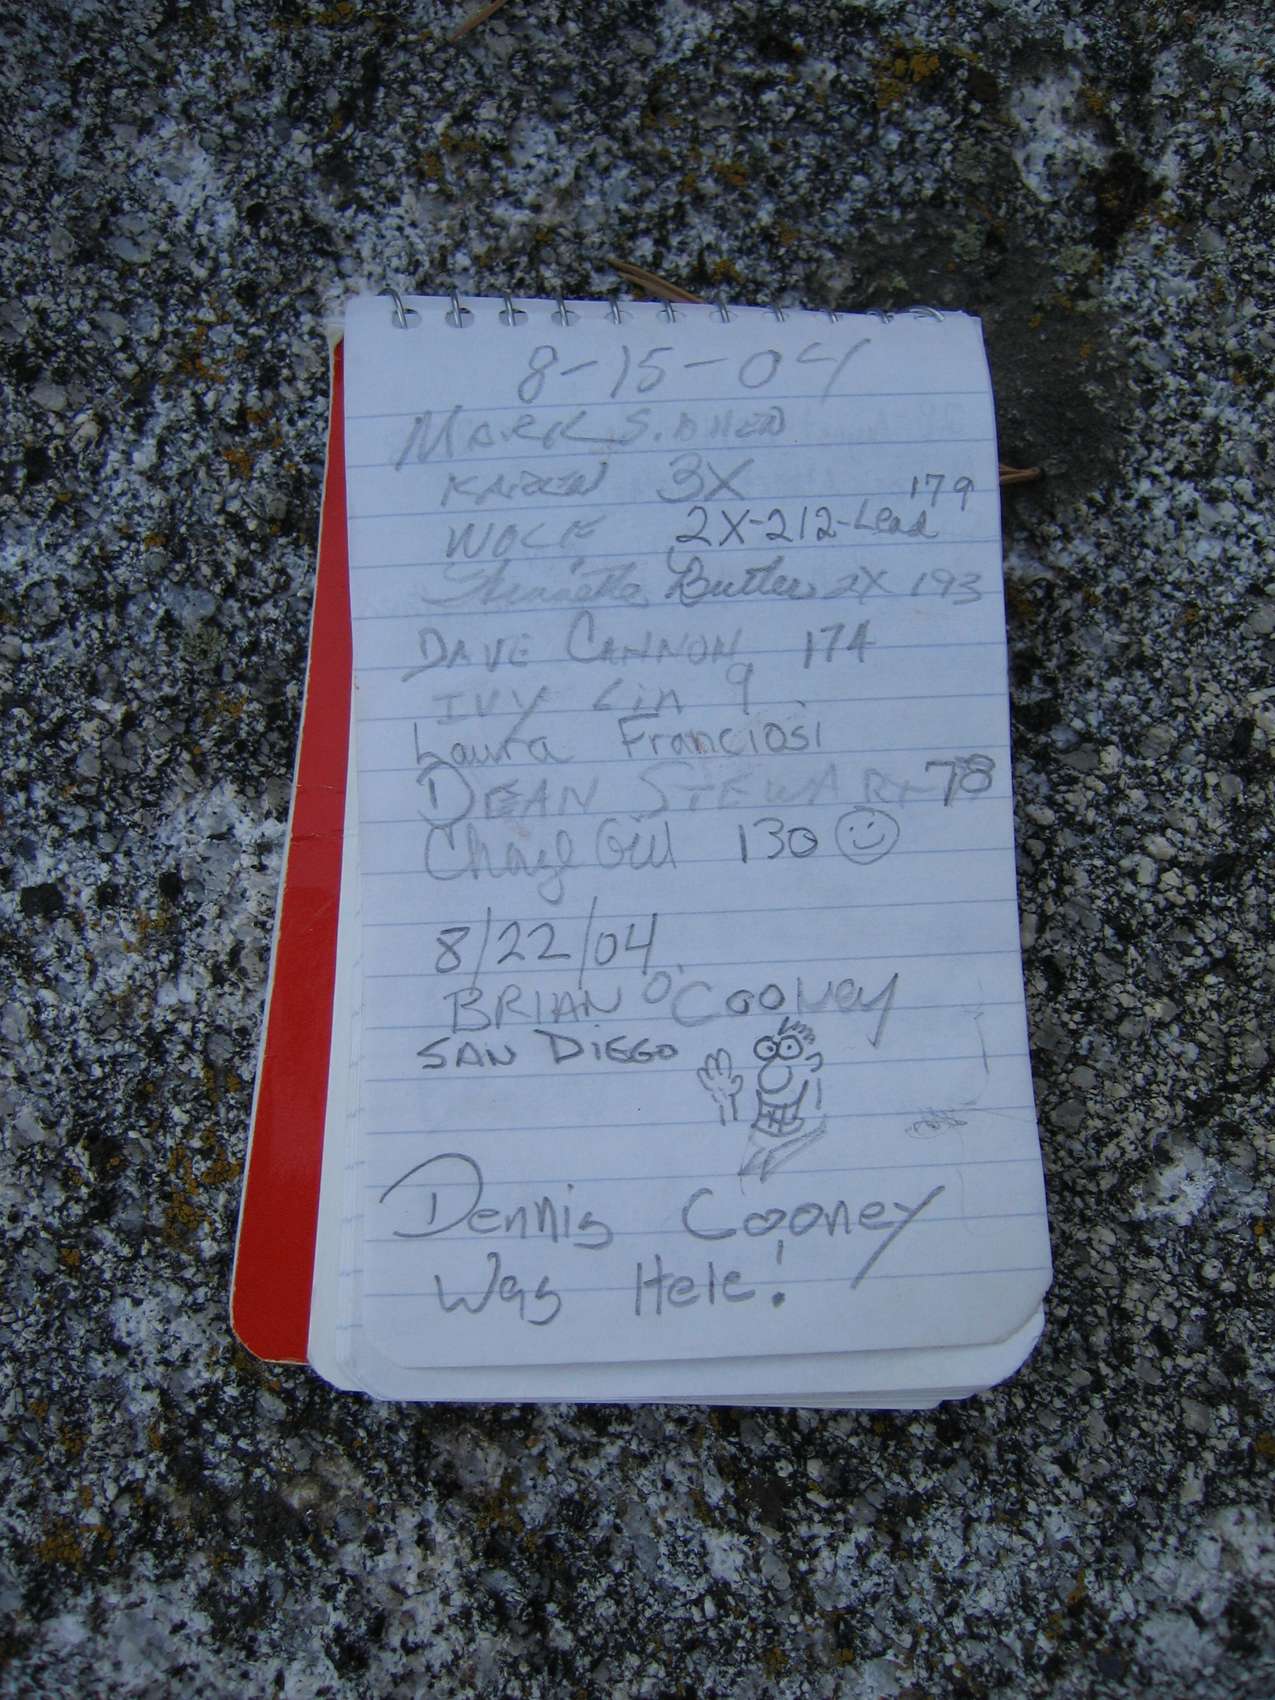 8-15-04
MARK S.
KAREN 3X 179
WOLF 2X-212-Lead
Butler 2X 193
DAVE CANNON 174
IVY Lin 9
Laura Franciosi
DEAN STEWART 78
Gill 130
8/22/04
BRIAN O'Cooney
SAN DIEGO
Dennis Cooney
Was Here!